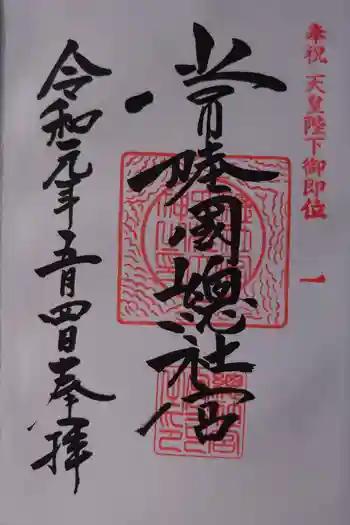 奉祝 天皇陛下御即位 一
常陸國總社宮
令和元年五月四日奉拝